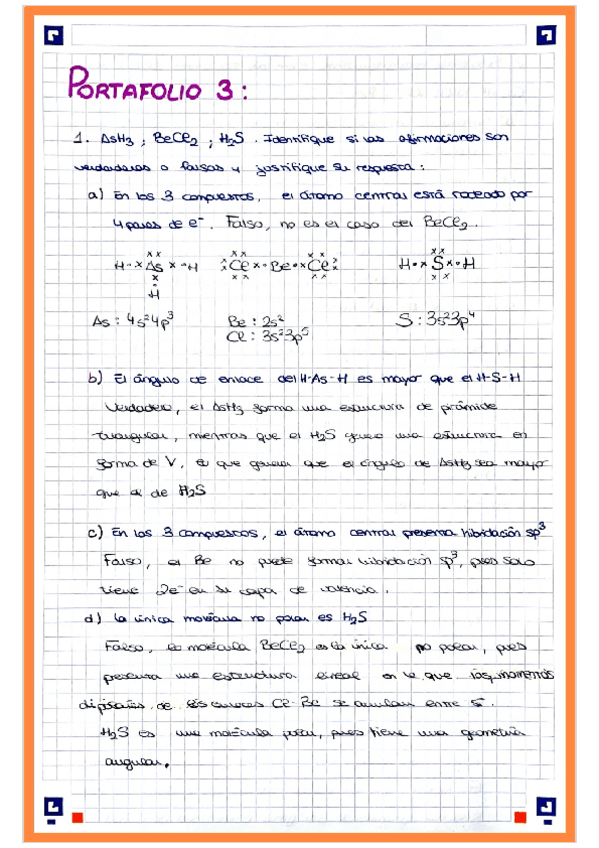 PORTAFOLIO 3:
1. AsH₃ ; BeCl₂ ; H₂S . Identifique si las afirmaciones son
verdaderas o falsas y justifique su respuesta:
a) En los 3 compuestos, el átomo central está rodeado por
4 pares de e⁻. Falso, no es el caso del BeCl₂.
H·xAsx·H xClx·Be·xClx H·xSx·H
H
As: 4s²4p³ Be: 2s² S: 3s²3p⁴
Cl: 3s²3p⁵
b) El ángulo de enlace del H-As-H es mayor que el H-S-H
Verdadero, el AsH₃ forma una estructura de pirámide
triangular, mientras que el H₂S una estructura en
forma de V, que genera que el ángulo de AsH₃ sea mayor
que el de H₂S
c) En los 3 compuestos, el átomo central presenta hibridación sp³
Falso, el Be no puede formar hibridación sp³, pues solo
tiene 2e⁻ en su capa de valencia.
d) La única molécula no polar es H₂S
Falso, la molécula BeCl₂ es la única no polar, pues
presenta una estructura lineal en la que los momentos
dipolares de los enlaces Cl-Be se anulan entre sí.
H₂S es una molécula polar, pues tiene una geometría
angular.